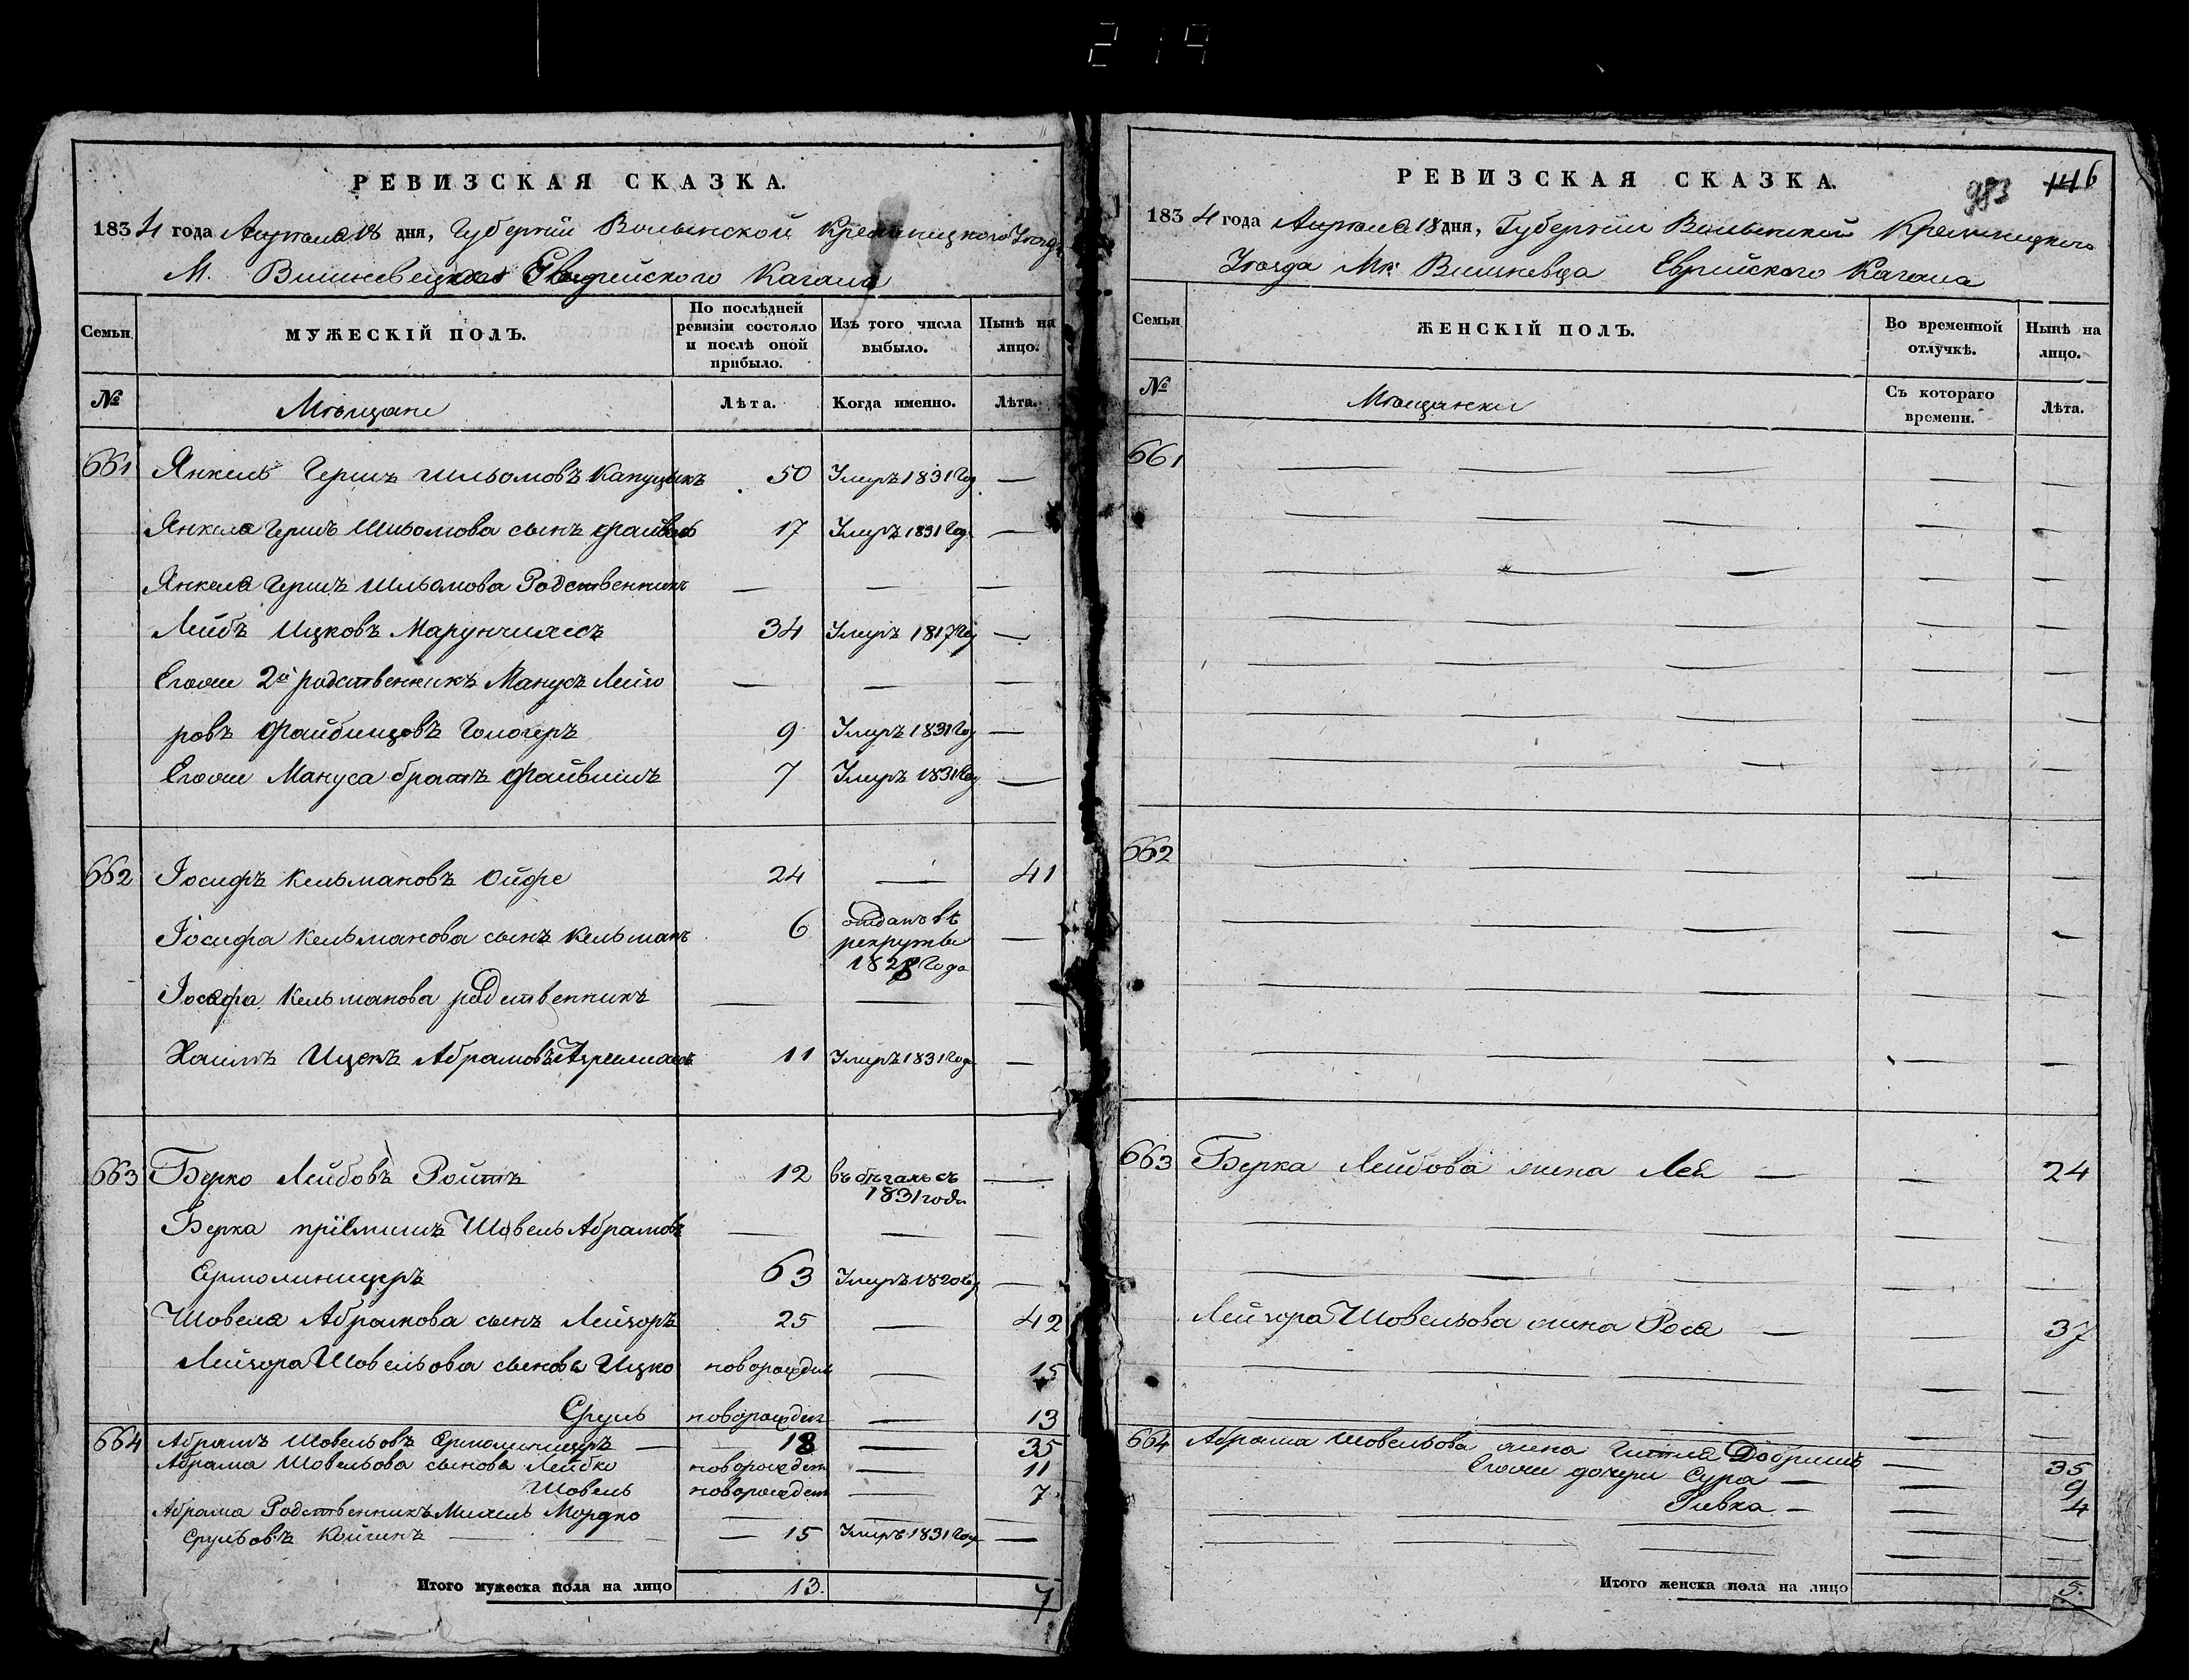 219
РЕВИЗСКАЯ СКАЗКА.
1834 года Апреля 18 дня, Губерніи Волынской Кременицкого Уезда
М. Вишневецкого Еврейского Кагала
Семьи
МУЖЕСКІЙ ПОЛЪ.
По послѣдней ревизіи состояло и послѣ оной прибыло.
Изъ того числа выбыло.
Нынѣ на лицо.
№
Мѣщане
Лѣта.
Когда именно.
Лѣта.
661 Янкель Гершъ Шльомовъ Капуцыкъ 50 Умеръ 1831 Год —
Янкеля Гершъ Шльомова сынъ Файвель 17 Умеръ 1831 Год —
Янкеля Гершъ Шльомова Родственникъ — — —
Лейбъ Ицковъ 34 Умеръ 1817 Год —
Егоже 2й родственникъ Манусъ Лейзо — — —
ровъ Файбишовъ 9 Умеръ 1831 Год —
Егоже Мануса братъ Файвишъ 7 Умеръ 1831 Год —
662 Іосифъ Кельмановъ Ойфе 24 — 41
Іосифа Кельманова сынъ Кельманъ 6 отданъ въ рекруты 1828 Года —
Іосифа Кельманова родственникъ — — —
Хаимъ Ицекъ Абрамовъ 11 Умеръ 1831 Года —
663 Берко Лейбовъ Ройтъ 12 въ бѣгахъ съ 1831 года —
Берка пріемышъ Шовель Абрамовъ — — —
Ермолинецеръ 63 Умеръ 1820 Год —
Шовеля Абрамова сынъ Лейзоръ 25 — 42
Лейзора Шовельова сыновья Ицко новорожден — 15
Сруль новорожден — 13
664 Абрамъ Шовельовъ Ермолинецеръ — 18 — 35
Абрама Шовельова сыновья Лейбко новорожден — 11
Шовель новорожден — 7
Абрама Родственникъ Михель Мордко — — —
Срульовъ Койченъ — 15 Умеръ 1831 Год —
Итого мужеска пола на лицо 13. 7
РЕВИЗСКАЯ СКАЗКА.
983 146
1834 года Апреля 18 дня, Губерніи Волынской Кременицкого
Уезда Мк: Вишневца Еврейского Кагала
Семьи
ЖЕНСКІЙ ПОЛЪ.
Во временной отлучкѣ.
Нынѣ на лицо.
№
Мѣщанки
Съ котораго времени.
Лѣта.
661
662
663 Берка Лейбова жена Лея — — 24
Лейзора Шовельова жена Рося — — 37
664 Абрама Шовельова жена Гитля Добришъ — 35
Егоже дочери Сура — — 9
Ривка — — 4
Итого женска пола на лицо 5.